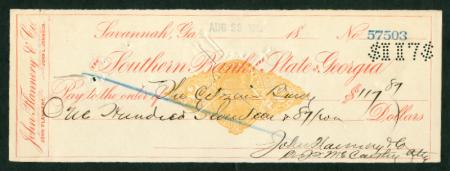 Savannah, Ga. AUG 23 18 No. 57503
$117$
The Southern Bank of the State of Georgia
Pay to the order of The Citizens Bank $117 87
One Hundred Seventeen & 87/100 Dollars
John Flannery & Co
John Flannery & Co.